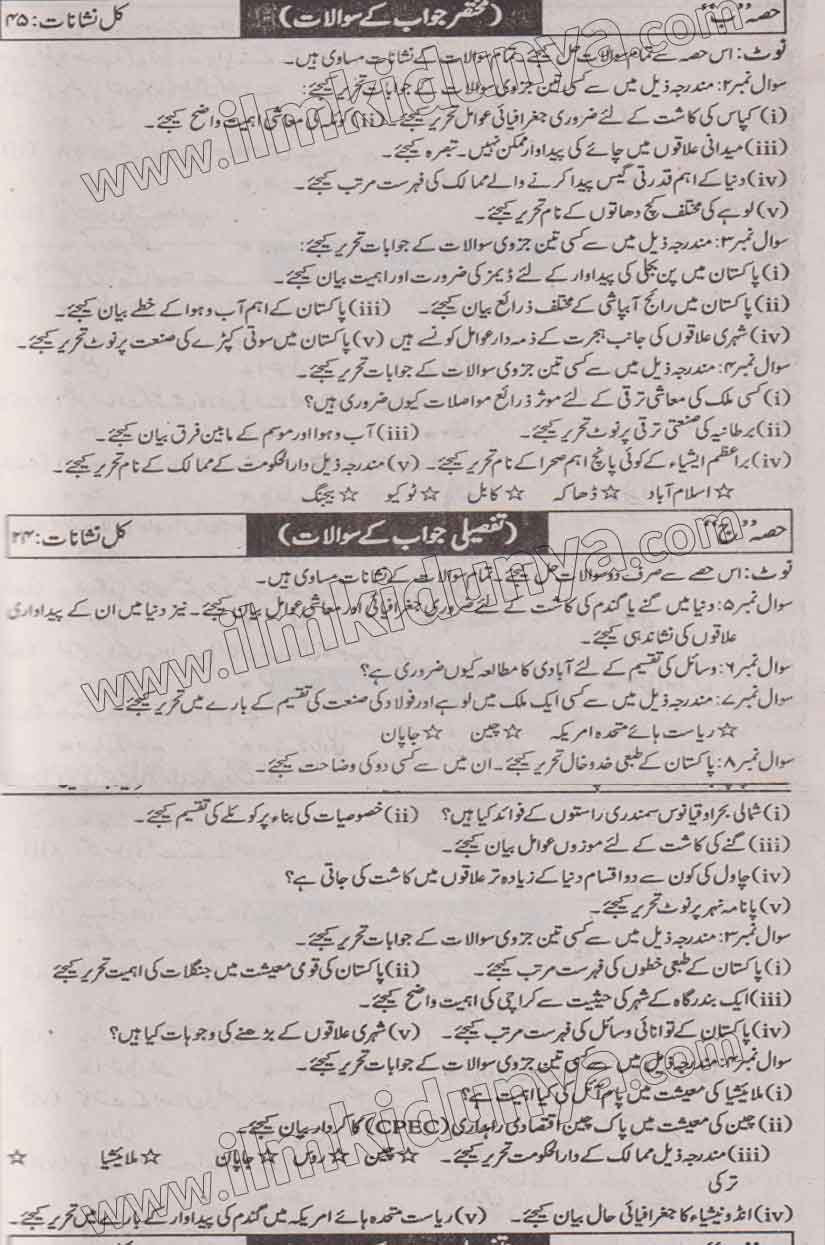 حصہ ”ب“ (مختصر جواب کے سوالات) کل نشانات: ۴۵
نوٹ: اس حصہ سے تمام سوالات حل کیجئے۔ تمام سوالات کے نشانات مساوی ہیں۔
سوال نمبر۲: مندرجہ ذیل میں سے کسی تین جزوی سوالات کے جوابات تحریر کیجئے:
(i) کپاس کی کاشت کے لئے ضروری جغرافیائی عوامل تحریر کیجئے۔ (ii) کوئلہ کی معاشی اہمیت واضح کیجئے۔
(iii) میدانی علاقوں میں چائے کی پیداوار ممکن نہیں۔ تبصرہ کیجئے۔
(iv) دنیا کے اہم قدرتی گیس پیدا کرنے والے ممالک کی فہرست مرتب کیجئے۔
(v) لوہے کی مختلف کچ دھاتوں کے نام تحریر کیجئے۔
سوال نمبر۳: مندرجہ ذیل میں سے کسی تین جزوی سوالات کے جوابات تحریر کیجئے:
(i) پاکستان میں پن بجلی کی پیداوار کے لئے ڈیمز کی ضرورت اور اہمیت بیان کیجئے۔
(ii) پاکستان میں رائج آبپاشی کے مختلف ذرائع بیان کیجئے۔ (iii) پاکستان کے اہم آب و ہوا کے خطے بیان کیجئے۔
(iv) شہری علاقوں کی جانب ہجرت کے ذمہ دار عوامل کونسے ہیں (v) پاکستان میں سوتی کپڑے کی صنعت پر نوٹ تحریر کیجئے۔
سوال نمبر۴: مندرجہ ذیل میں سے کسی تین جزوی سوالات کے جوابات تحریر کیجئے۔
(i) کسی ملک کی معاشی ترقی کے لئے موثر ذرائع مواصلات کیوں ضروری ہیں؟
(ii) برطانیہ کی صنعتی ترقی پر نوٹ تحریر کیجئے۔ (iii) آب و ہوا اور موسم کے مابین فرق بیان کیجئے۔
(iv) براعظم ایشیاء کے کوئی پانچ اہم صحرا کے نام تحریر کیجئے۔ (v) مندرجہ ذیل دارالحکومت کے ممالک کے نام تحریر کیجئے۔
☆ اسلام آباد ☆ ڈھاکہ ☆ کابل ☆ ٹوکیو ☆ بیجنگ
حصہ ”ج“ (تفصیلی جواب کے سوالات) کل نشانات: ۲۴
نوٹ: اس حصے سے صرف دو سوالات حل کیجئے۔ تمام سوالات کے نشانات مساوی ہیں۔
سوال نمبر۵: دنیا میں گنے یا گندم کی کاشت کے لئے ضروری جغرافیائی اور معاشی عوامل بیان کیجئے۔ نیز دنیا میں ان کے پیداواری
علاقوں کی نشاندہی کیجئے۔
سوال نمبر۶: وسائل کی تقسیم کے لئے آبادی کا مطالعہ کیوں ضروری ہے؟
سوال نمبر۷: مندرجہ ذیل میں سے کسی ایک ملک میں لوہے اور فولاد کی صنعت کی تقسیم کے بارے میں تحریر کیجئے۔
☆ ریاست ہائے متحدہ امریکہ ☆ چین ☆ جاپان
سوال نمبر۸: پاکستان کے طبعی خدوخال تحریر کیجئے۔ ان میں سے کسی دو کی وضاحت کیجئے۔
(i) شمالی بحر اوقیانوس سمندری راستوں کے فوائد کیا ہیں؟ (ii) خصوصیات کی بناء پر کوئلے کی تقسیم کیجئے۔
(iii) گنے کی کاشت کے لئے موزوں عوامل بیان کیجئے۔
(iv) چاول کی کون سے دو اقسام دنیا کے زیادہ تر علاقوں میں کاشت کی جاتی ہے؟
(v) پانامہ نہر پر نوٹ تحریر کیجئے۔
سوال نمبر۳: مندرجہ ذیل میں سے کسی تین جزوی سوالات کے جوابات تحریر کیجئے۔
(i) پاکستان کے طبعی خطوں کی فہرست مرتب کیجئے۔ (ii) پاکستان کی قومی معیشت میں جنگلات کی اہمیت تحریر کیجئے
(iii) ایک بندرگاہ کے شہر کی حیثیت سے کراچی کی اہمیت واضح کیجئے۔
(iv) پاکستان کے توانائی وسائل کی فہرست مرتب کیجئے۔ (v) شہری علاقوں کے بڑھنے کی وجوہات کیا ہیں؟
سوال نمبر۴: مندرجہ ذیل میں سے کسی تین جزوی سوالات کے جوابات تحریر کیجئے۔
(i) ملائیشیا کی معیشت میں پام آئل کی کیا اہمیت ہے؟
(ii) چین کی معیشت میں پاک چین اقتصادی راہداری (CPEC) کا کردار بیان کیجئے۔
(iii) مندرجہ ذیل ممالک کے دارالحکومت تحریر کیجئے۔ ☆ چین ☆ روس ☆ جاپان ☆ ملائیشیا ☆
ترکی
(iv) انڈونیشیاء کا جغرافیائی حال بیان کیجئے۔ (v) ریاست متحدہ ہائے امریکہ میں گندم کی پیداوار کے بارے میں تحریر کیجئے۔
www.ilmkidunya.com
www.ilmkidunya.com
www.ilmkidunya.com